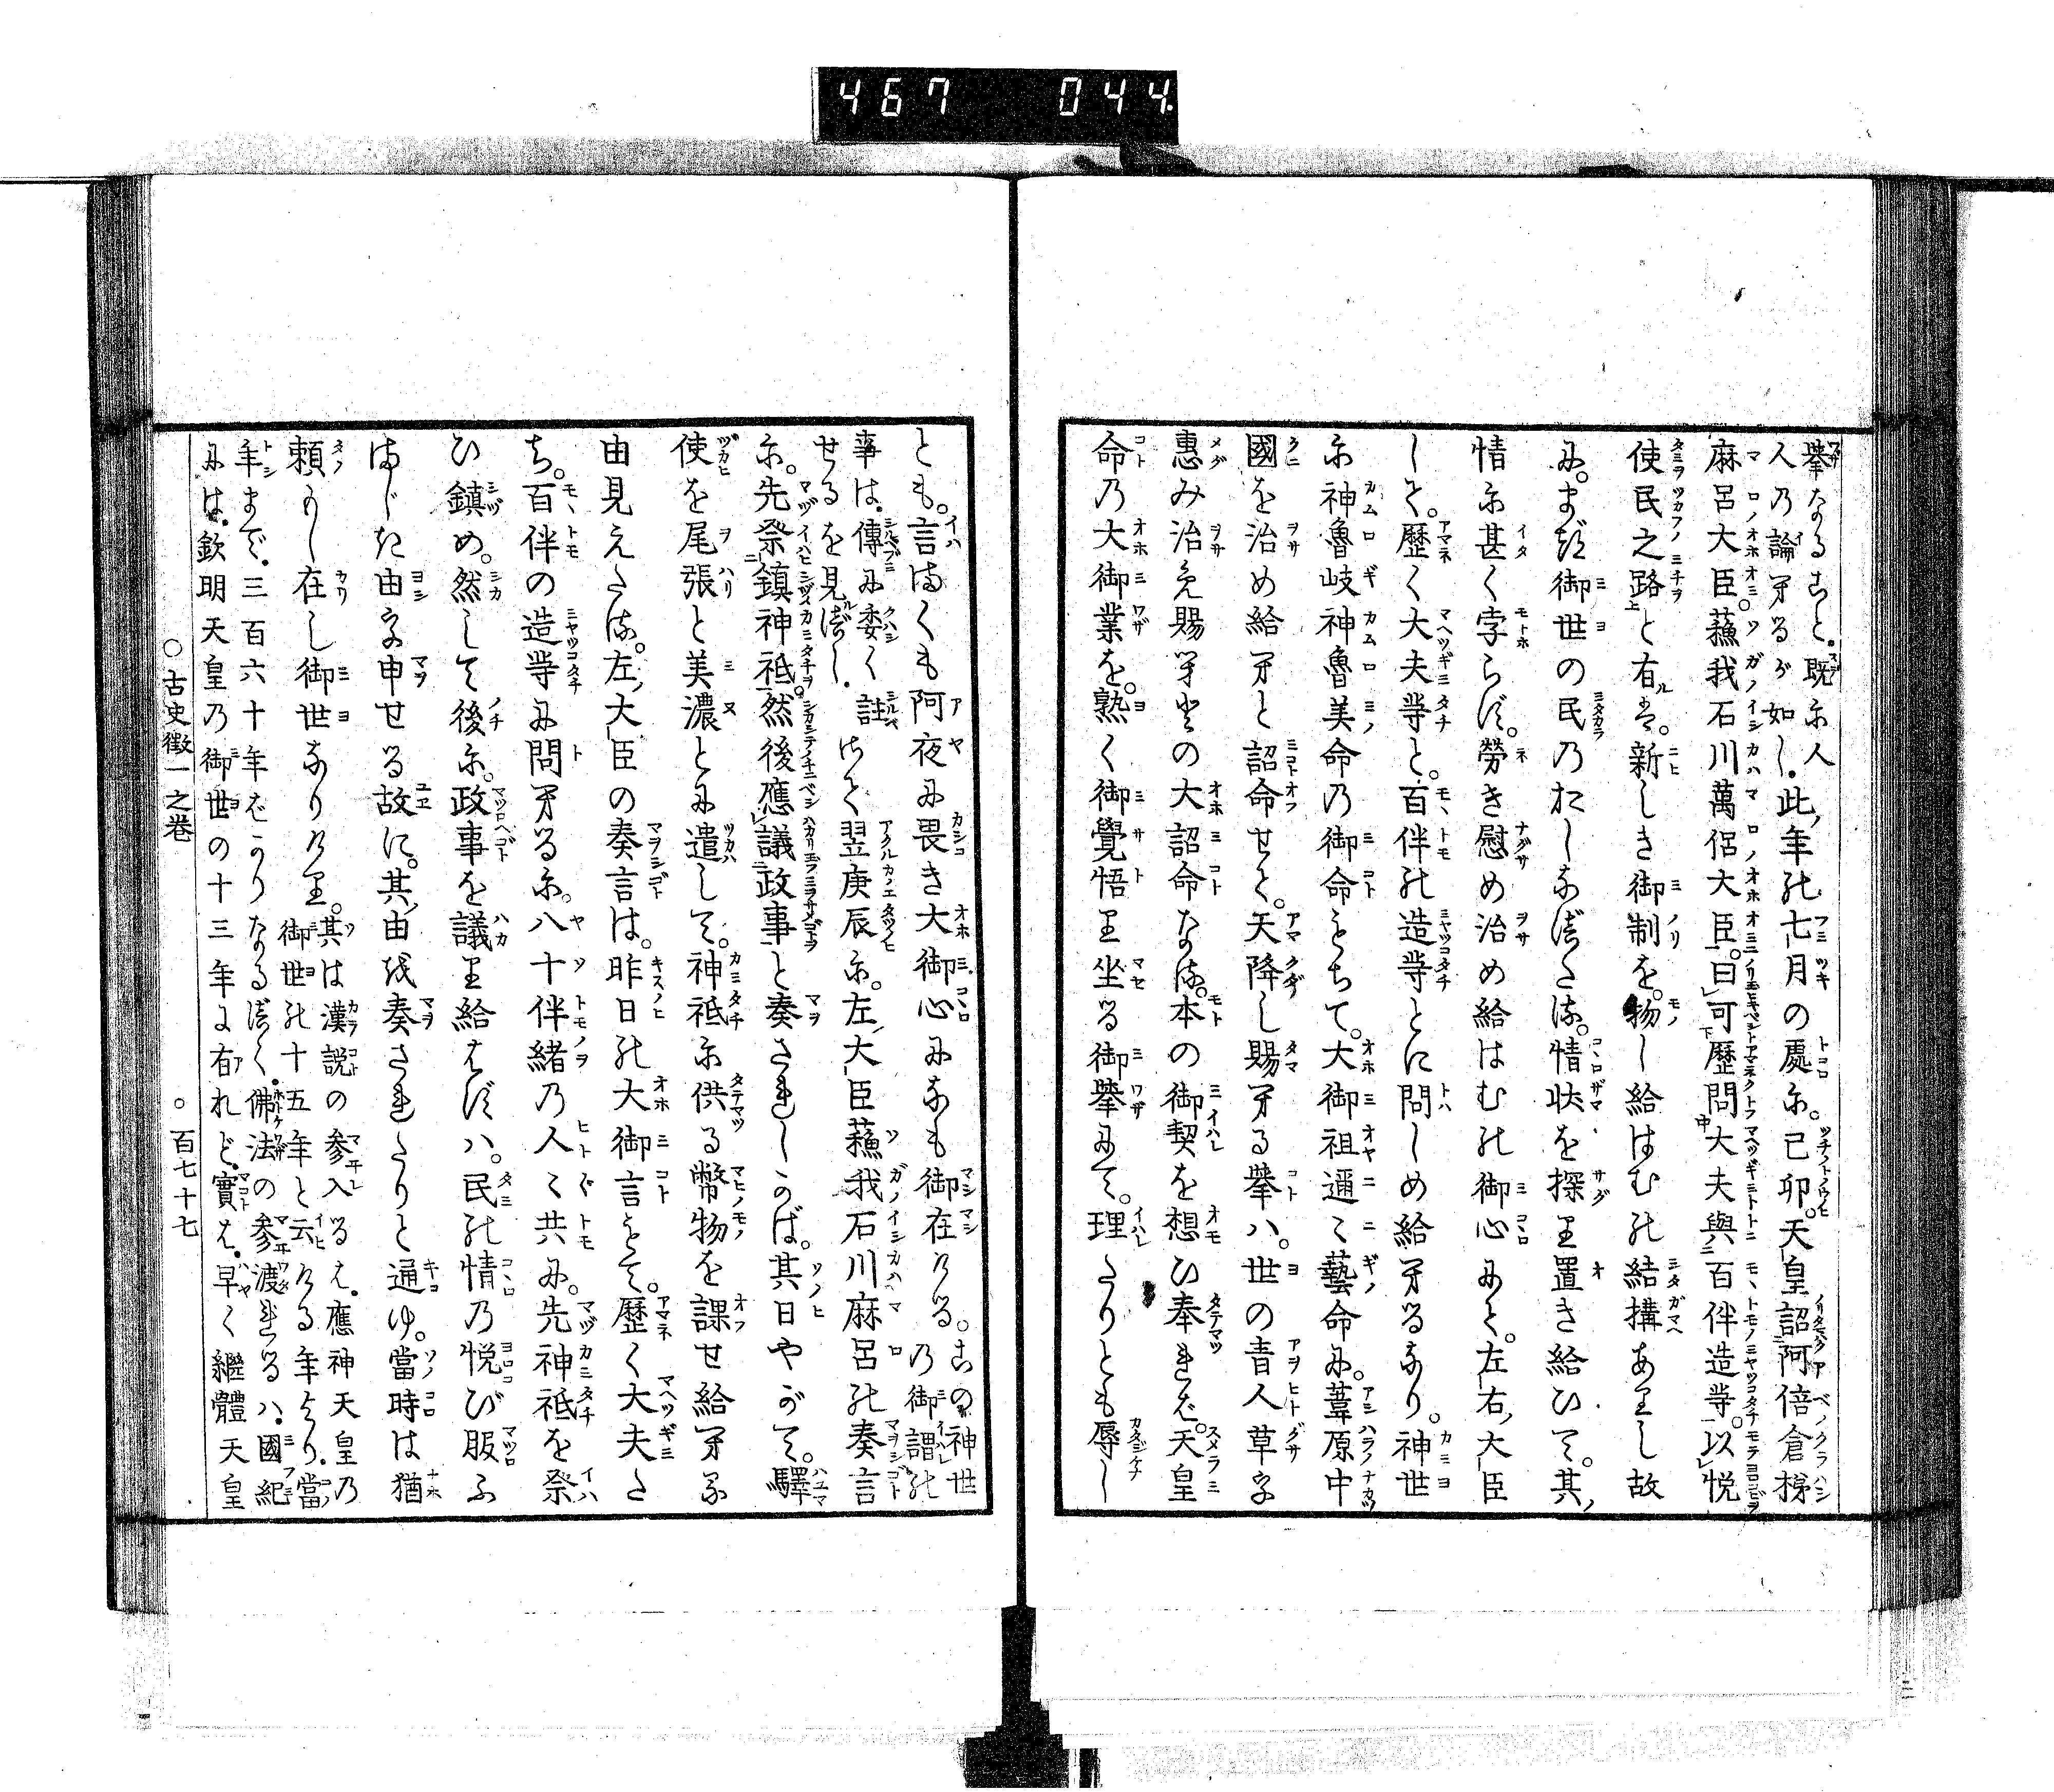 467 044
擧なること。既に人
人の論へるが如し。此年の七月の處に。己卯。天皇詔阿倍倉梯
麻呂大臣。蘓我石川萬侶大臣。曰可歷問大夫與百伴造等。以悦
使民之路と有は。新しき御制を。物し給はむの結構ありし故
に。まづ御世の民のおしなべたる。情状を探り置き給ひて。其
情に甚く孛らず。勞き慰め治め給はむの御心にて。左右大臣
して。歷く大夫等と。百伴の造等とに問しめ給へるなり。神世
に神魯岐神魯美命の御命もちて。大御祖邇々藝命に。葦原中
國を治め給へと詔命せて。天降し賜へる擧は。世の青人草を
惠み治め賜へとの大詔命なる。本の御契を想ひ奉れば。天皇
命の大御業を。熟く御覺悟り坐せる御擧にて。理たりとも辱し
とも。言まくも阿夜に畏き大御心になも御在ける。この神世の御謂の
事は。傳に委く註せるを見べし。さて翌庚辰に。左大臣蘓我石川麻呂の奏言
に。先祭鎮神祇。然後應議政事と奏されしかば。其日やがて。驛
使を尾張と美濃とに遣して。神祇に供る幣物を課せ給へる
由見えたる。左大臣の奏言は。昨日の大御言もて。歷く大夫た
ち。百伴の造等に問へるに。八十伴緒の人々共に。先神祇を祭
ひ鎮め。然して後に。政事を議り給はずハ。民の情の悦び服ふ
まじき由を申せる故に。其由を奏されたりと通ゆ。當時は猶
頼もしく在し御世なりけり。其は漢説の參入るは。應神天皇の御世の十五年と云ける年より。當
年まで。三百六十年ばかりなるべく。佛法の參渡れるハ。國紀
には。欽明天皇の御世の十三年に有れど。實は。早く繼體天皇
○古史徴一之巻
○百七十七